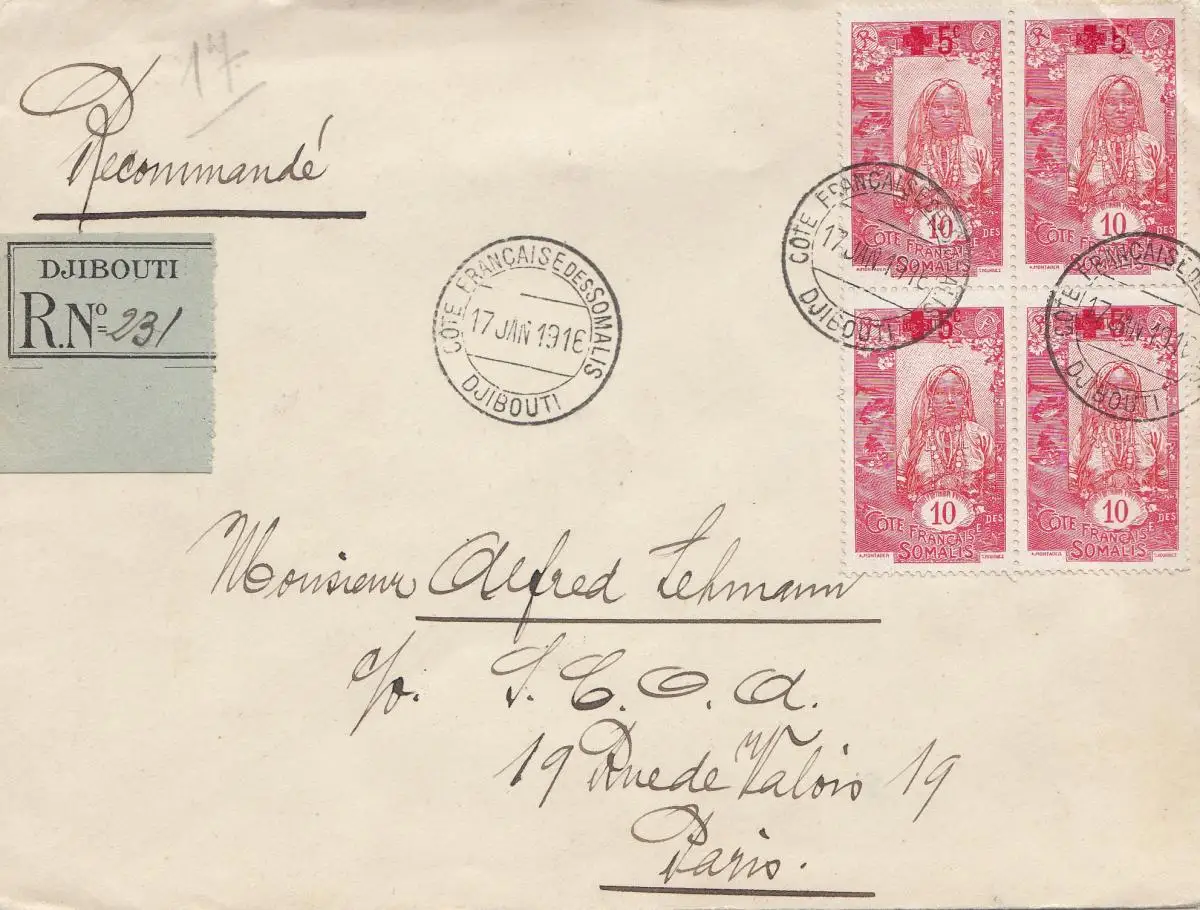 17.
Recommandé
DJIBOUTI
R.Nº 231
COTE FRANÇAISE DES SOMALIS
17 JAN 1916
DJIBOUTI
5c
5c
10
10
COTE FRANÇAISE DES SOMALIS
COTE FRANÇAISE DES SOMALIS
A.MONTADER
A.MONTADER
COTE FRANÇAISE DES SOMALIS
17 JAN 1916
DJIBOUTI
COTE FRANÇAISE DES
17 JAN 1916
DJIBOUTI
5c
5c
10
10
COTE FRANÇAISE DES SOMALIS
COTE FRANÇAISE DES SOMALIS
A.MONTADER
A.MONTADER
Monsieur Alfred Lehmann
c/o. S.C.O.A.
19 Rue de Valois 19
Paris.